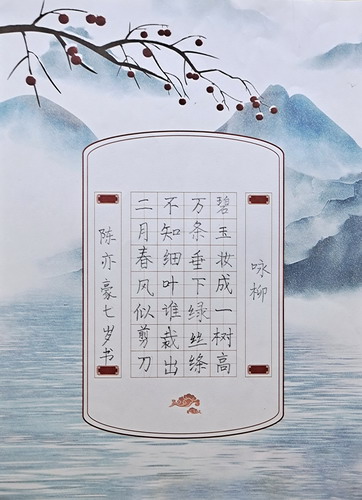 咏柳
碧玉妆成一树高
万条垂下绿丝绦
不知细叶谁裁出
二月春风似剪刀
陈亦豪七岁书